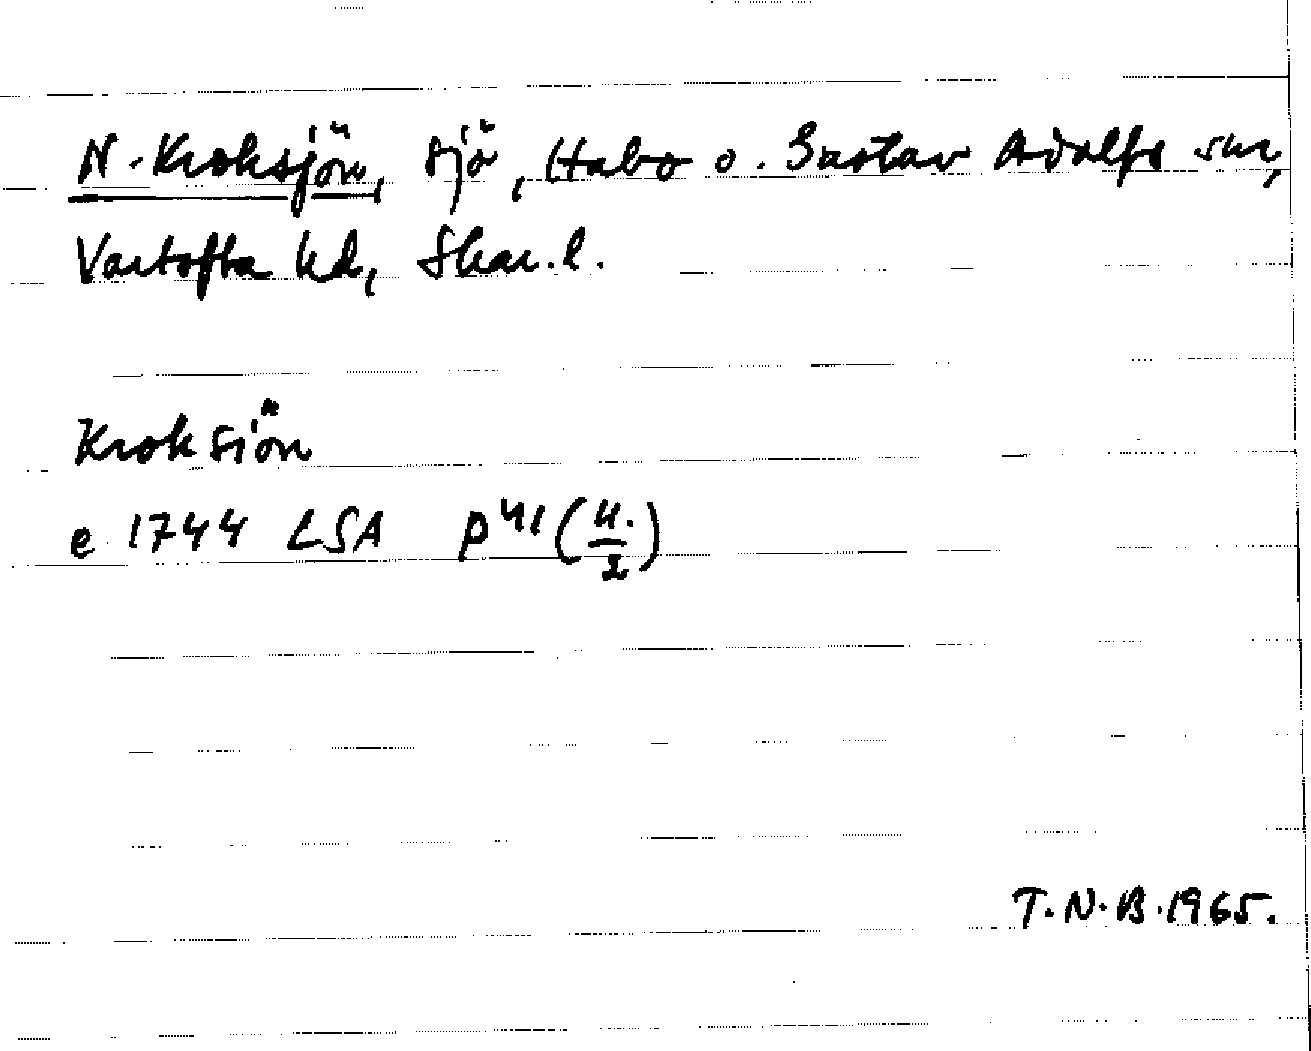 N. Kroksjön, sjö, Habo o. Gustav Adolfs snr,
Vartofta hd, Skar. l.
Kroksiön
e 1744 LSA P 41 (4./2)
T.N.B. 1965.